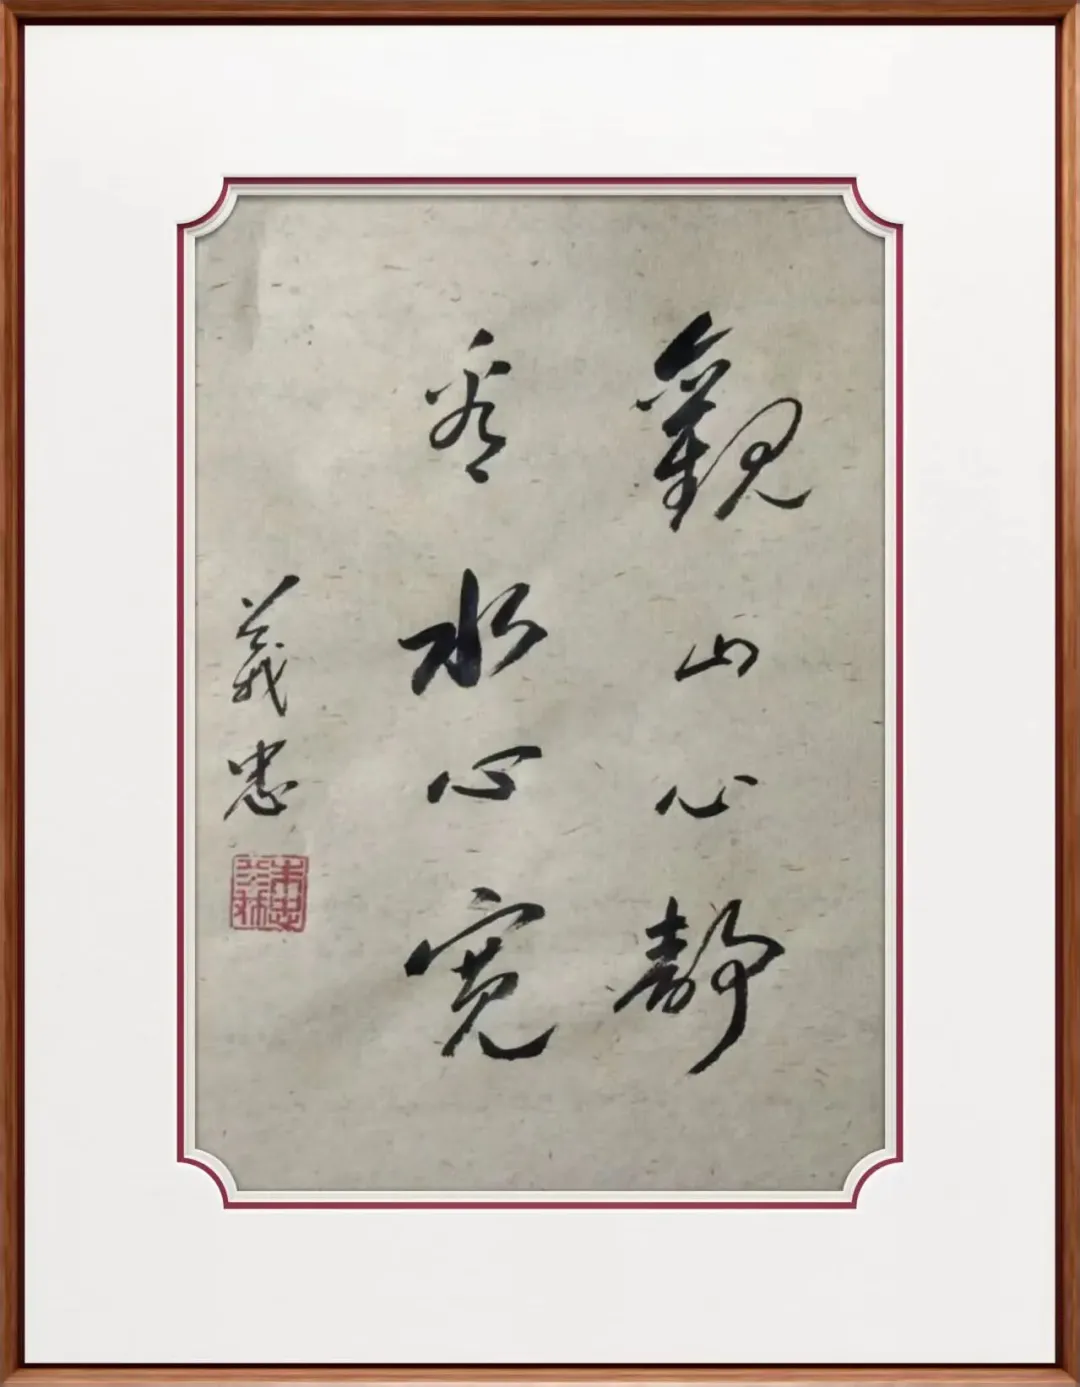 觀山心静
看水心寬
義忠